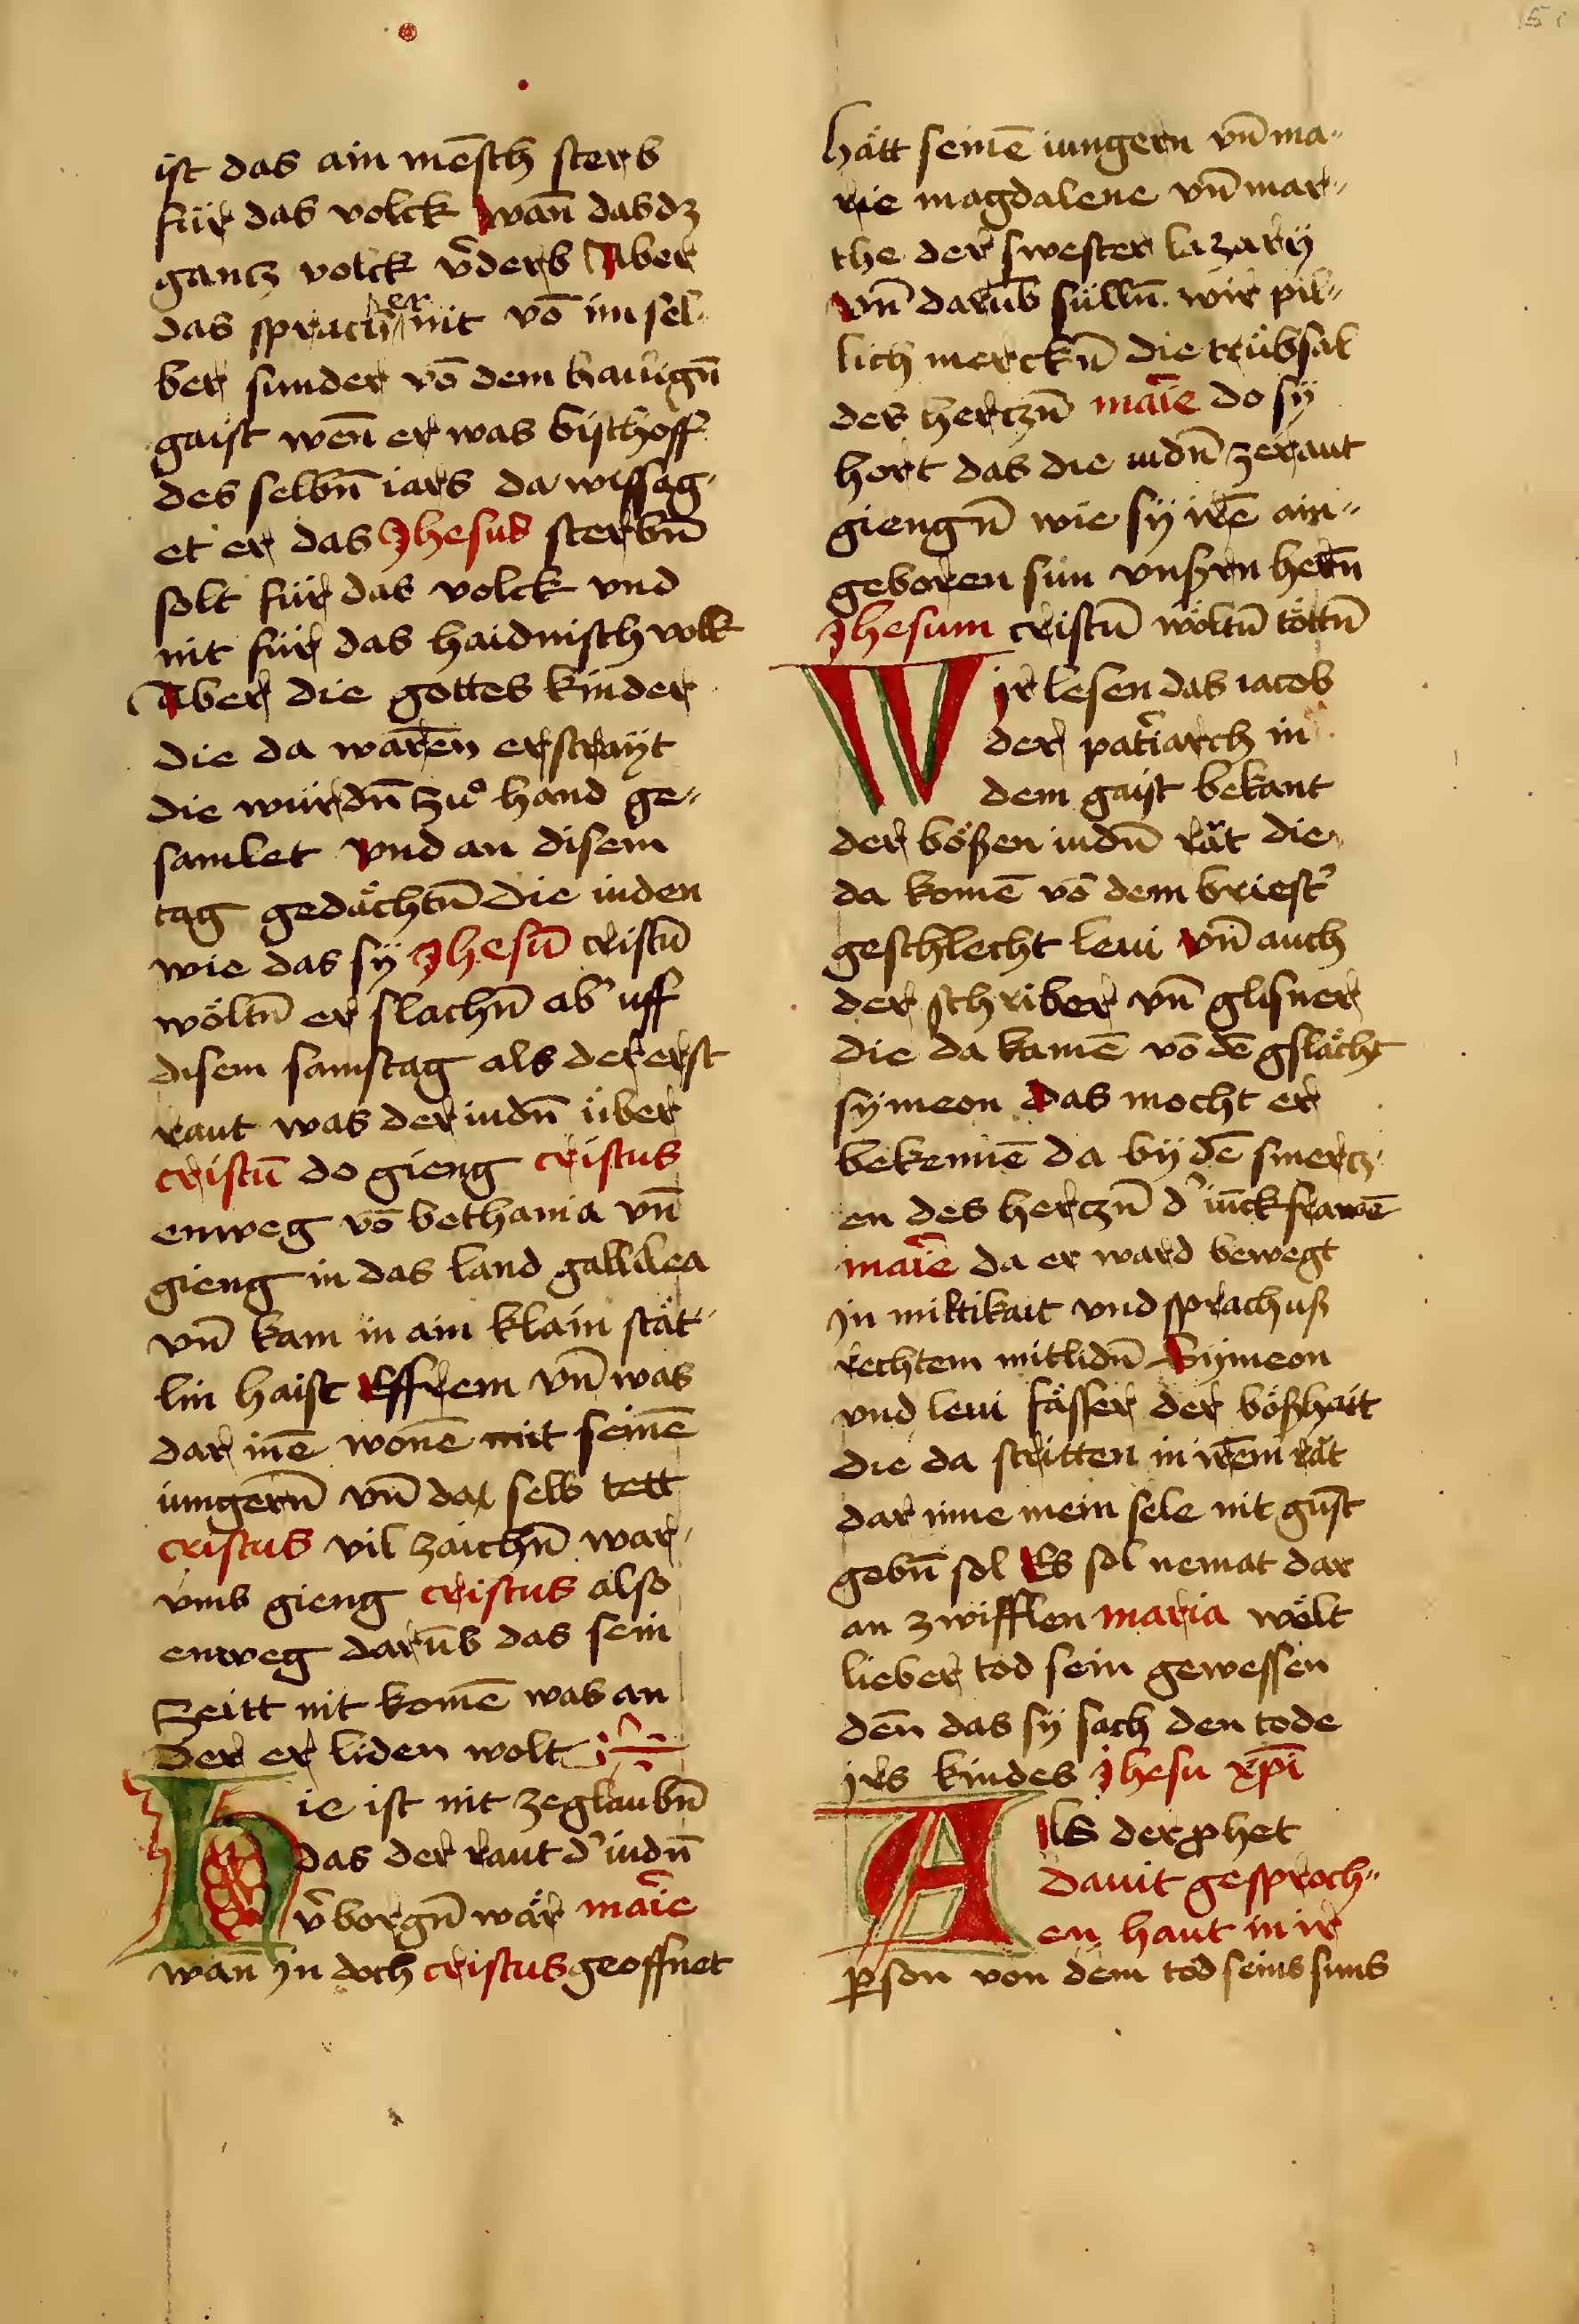 ist das ain mēsch sterb
für das volck wan̄ das dz
gantz volck v̄derb Aber
das sprach er nit vō im sel-
ber sunder vō dem hailign̄
gaist wen̄ er was bijschoff
des selbn̄ iars da wissag-
et er das Jhesus sterbn̄
solt für das volck vnd
nit für das haidnisch volk
Aber die gottes kinder
die da waren erstrayt
die würdn̄ zuͦ hand ge-
samlet vnd an disem
tag gedächtn̄ die iuden
wie das sÿ Jhesū cristū
wöltn̄ er slachn̄ ab uff
disem samstag als der erst
raut was der iudn̄ über
cristū do gieng cristus
enweg vō bethania vn̄
gieng in das land gallilea
vn̄ kam in ain klain stät-
lin haist Effrem vn̄ was
dar inē wonē mit seinē
iungern̄ vn̄ da selb tett
cristus vil zaichn̄ war-
vmb gieng cristus also
enweg darūb das sein
Zeitt nit komē was an
der er liden wolt
Hie ist nit zeglaubn̄
das der raut d' iudn̄
v̄borgn̄ wär maīe
wan̄ jn doch cristus geoffnet
hätt seinē iungern vn̄ ma-
rie magdalene vn̄ mar-
the der swester lazarÿ
vn̄ darūb sülln̄ wir pil-
lich merckn̄ die trübsal
des hertzn̄ maīe do sÿ
hort das die iudn̄ ze raut
giengn̄ wie sÿ irē ain-
geboren sun vnßrn hern̄
Jhesum cristū wöltn̄ töttn̄
Wir lesen das iacob
der patīarch in
dem gaist bekant
der bößen iudn̄ rät die
da komē vō dem briest'
geschlecht leui vn̄ auch
der schriber vn̄ glisner
die da kamē vō dē gslächt
sÿmeon das mocht er
bekennē da bÿ dē smertz-
en des hertzn̄ d' iūckfrawē
maīe da er ward bewegt
jn miltikait vnd sprach uß
rechtem mitlidn̄ Sÿmeon
vnd leui fässer der bößhait
die da stritten in irēm rät
dar inne mein sele nit gunst
gebn̄ sol Es sol nemat dar
an zwifflen maria wölt
lieber tod sein gewessen
den̄ das sÿ sach den tode
jrs kindes Jhesu xp̄i
Als der phet
dauit gesproch-
en haut in ir
pson von dem tod seins suns